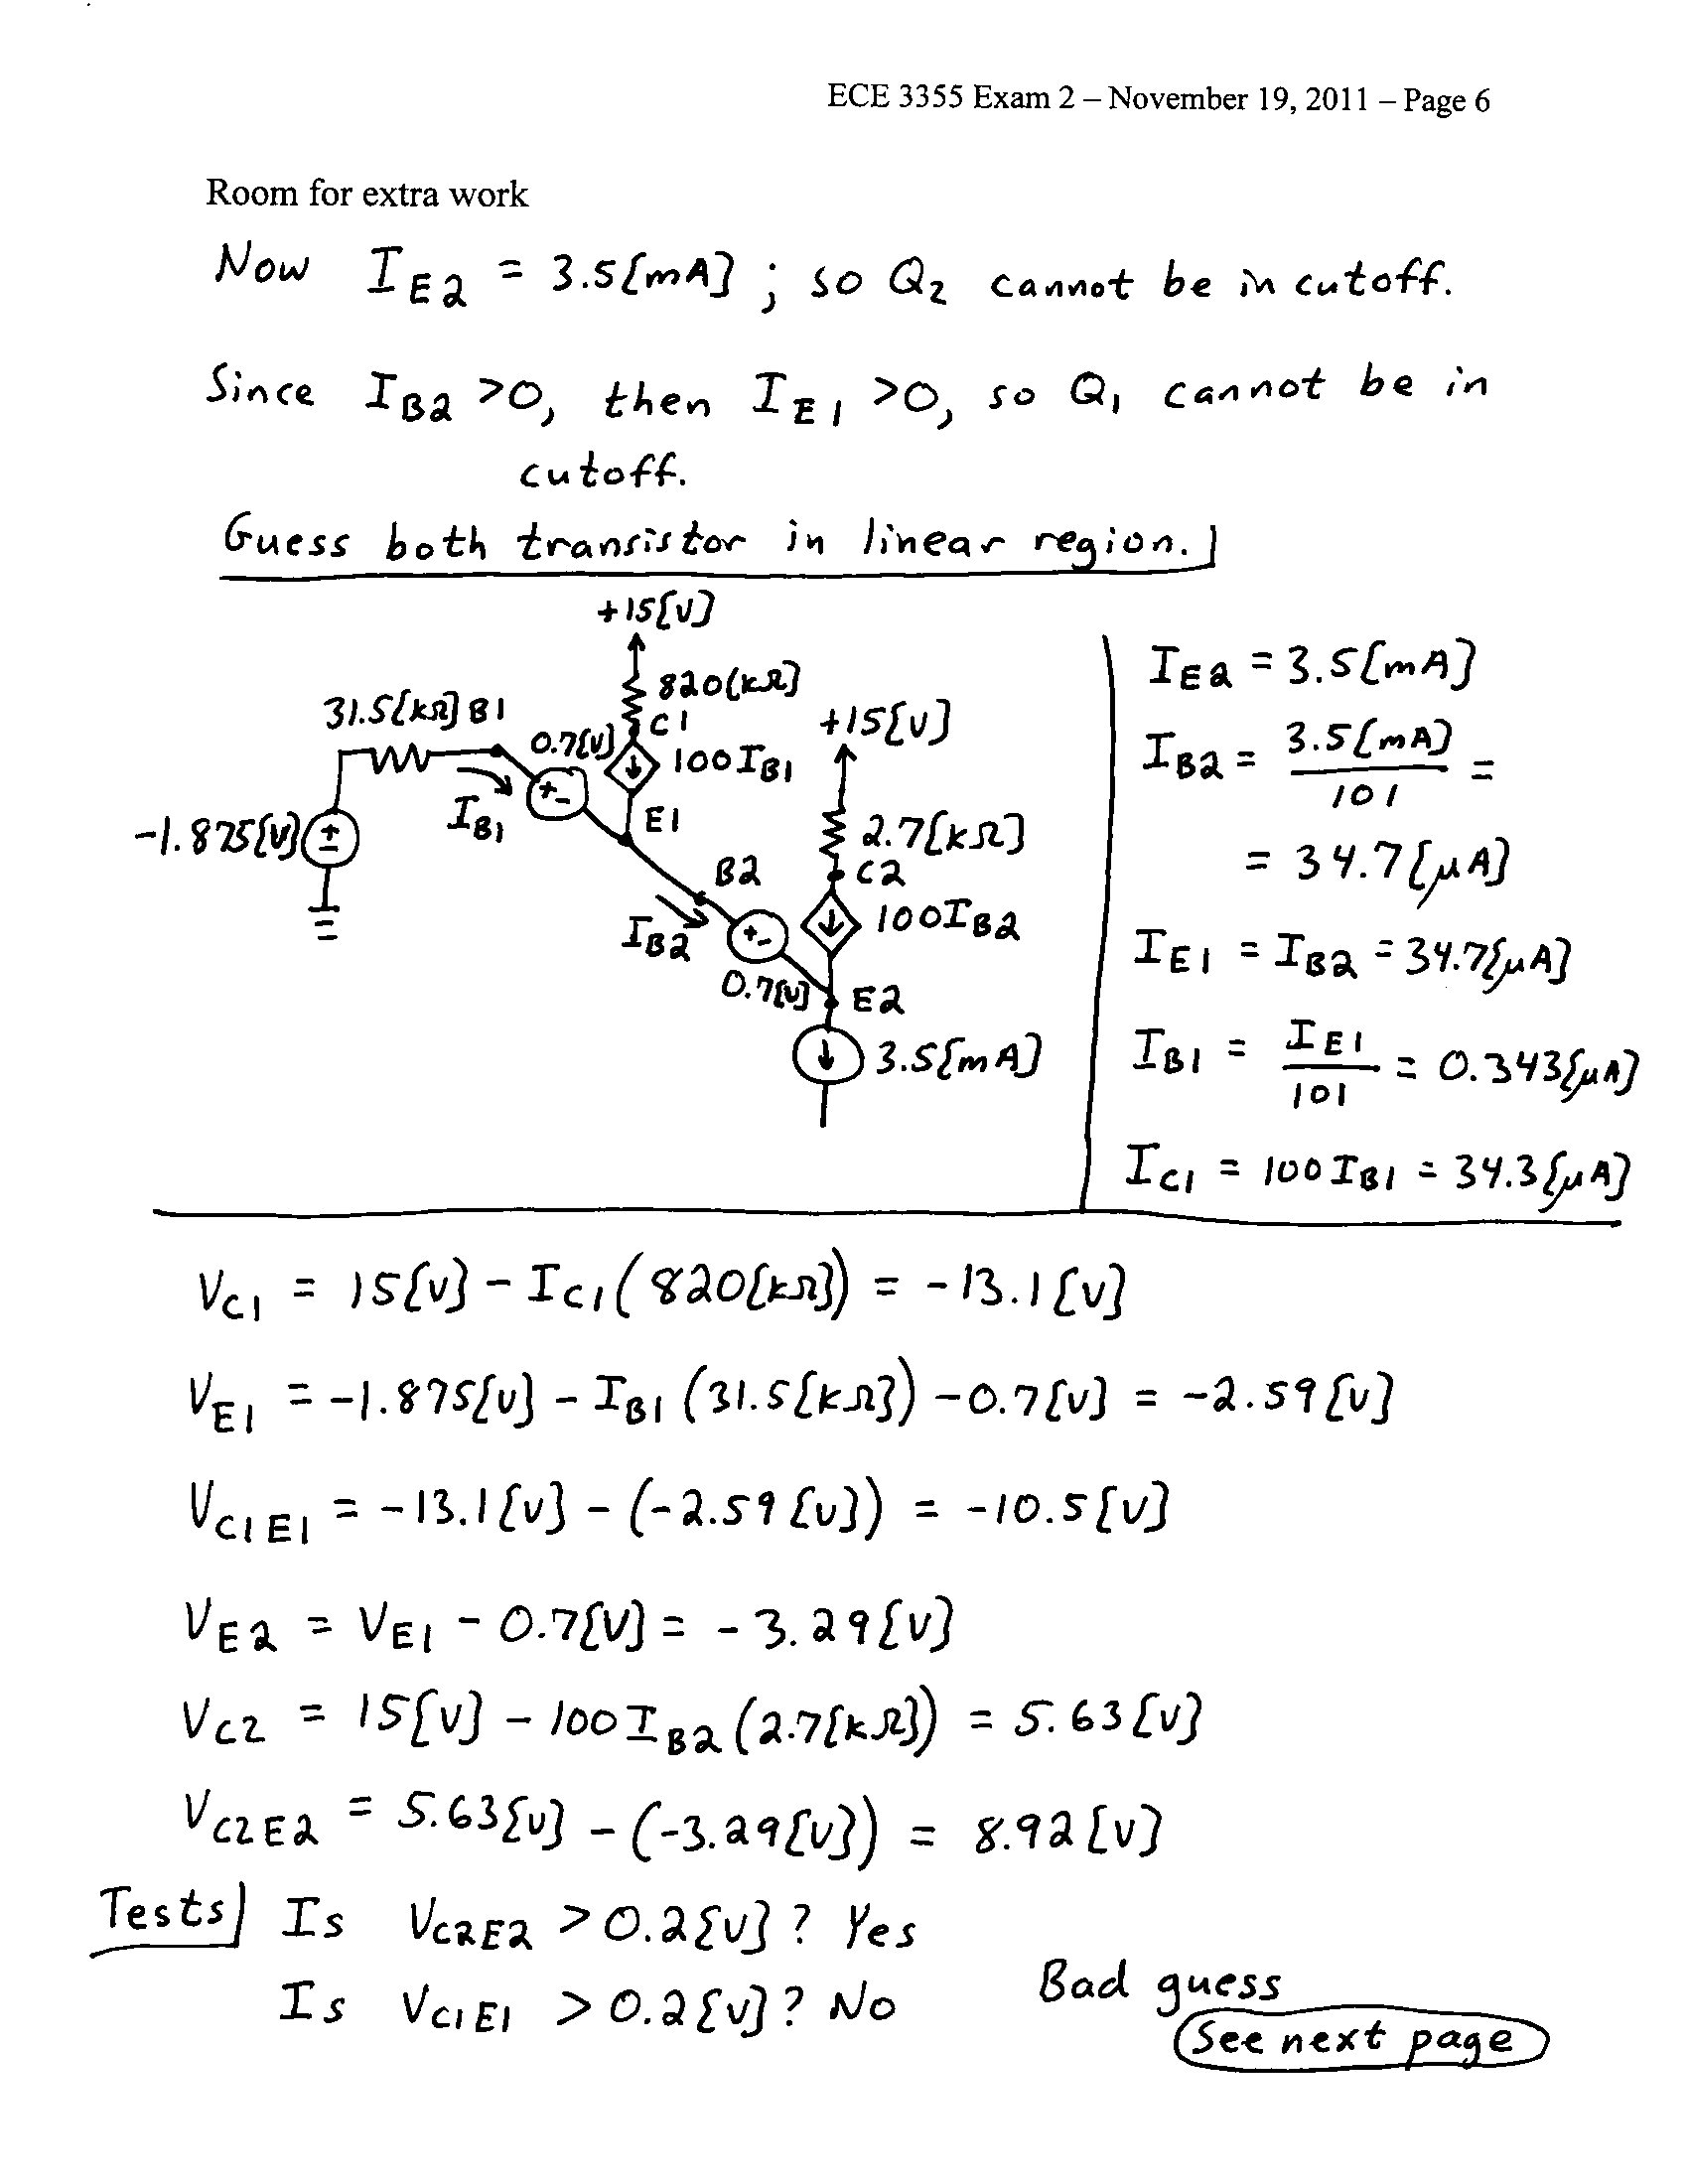 ECE 3355 Exam 2 – November 19, 2011 – Page 6
Room for extra work
Now I_E2 = 3.5[mA] ; so Q2 cannot be in cutoff.
Since I_B2 >0, then I_E1 >0, so Q1 cannot be in
cutoff.
Guess both transistor in linear region.
+15[V]
820[kΩ]
31.5[kΩ] B1
0.7[V]
C1
100 I_B1
+15[V]
I_B1
+ -
E1
-1.875[V]
+ -
2.7[kΩ]
B2
C2
I_B2
+ -
100 I_B2
0.7[V]
E2
3.5[mA]
I_E2 = 3.5[mA]
I_B2 = 3.5[mA] / 101 =
= 34.7[μA]
I_E1 = I_B2 = 34.7[μA]
I_B1 = I_E1 / 101 = 0.343[μA]
I_C1 = 100 I_B1 = 34.3[μA]
V_C1 = 15[V] - I_C1(820[kΩ]) = -13.1[V]
V_E1 = -1.875[V] - I_B1(31.5[kΩ]) - 0.7[V] = -2.59[V]
V_C1E1 = -13.1[V] - (-2.59[V]) = -10.5[V]
V_E2 = V_E1 - 0.7[V] = -3.29[V]
V_C2 = 15[V] - 100 I_B2(2.7[kΩ]) = 5.63[V]
V_C2E2 = 5.63[V] - (-3.29[V]) = 8.92[V]
Tests Is V_C2E2 > 0.2[V]? Yes
Is V_C1E1 > 0.2[V]? No
Bad guess
See next page